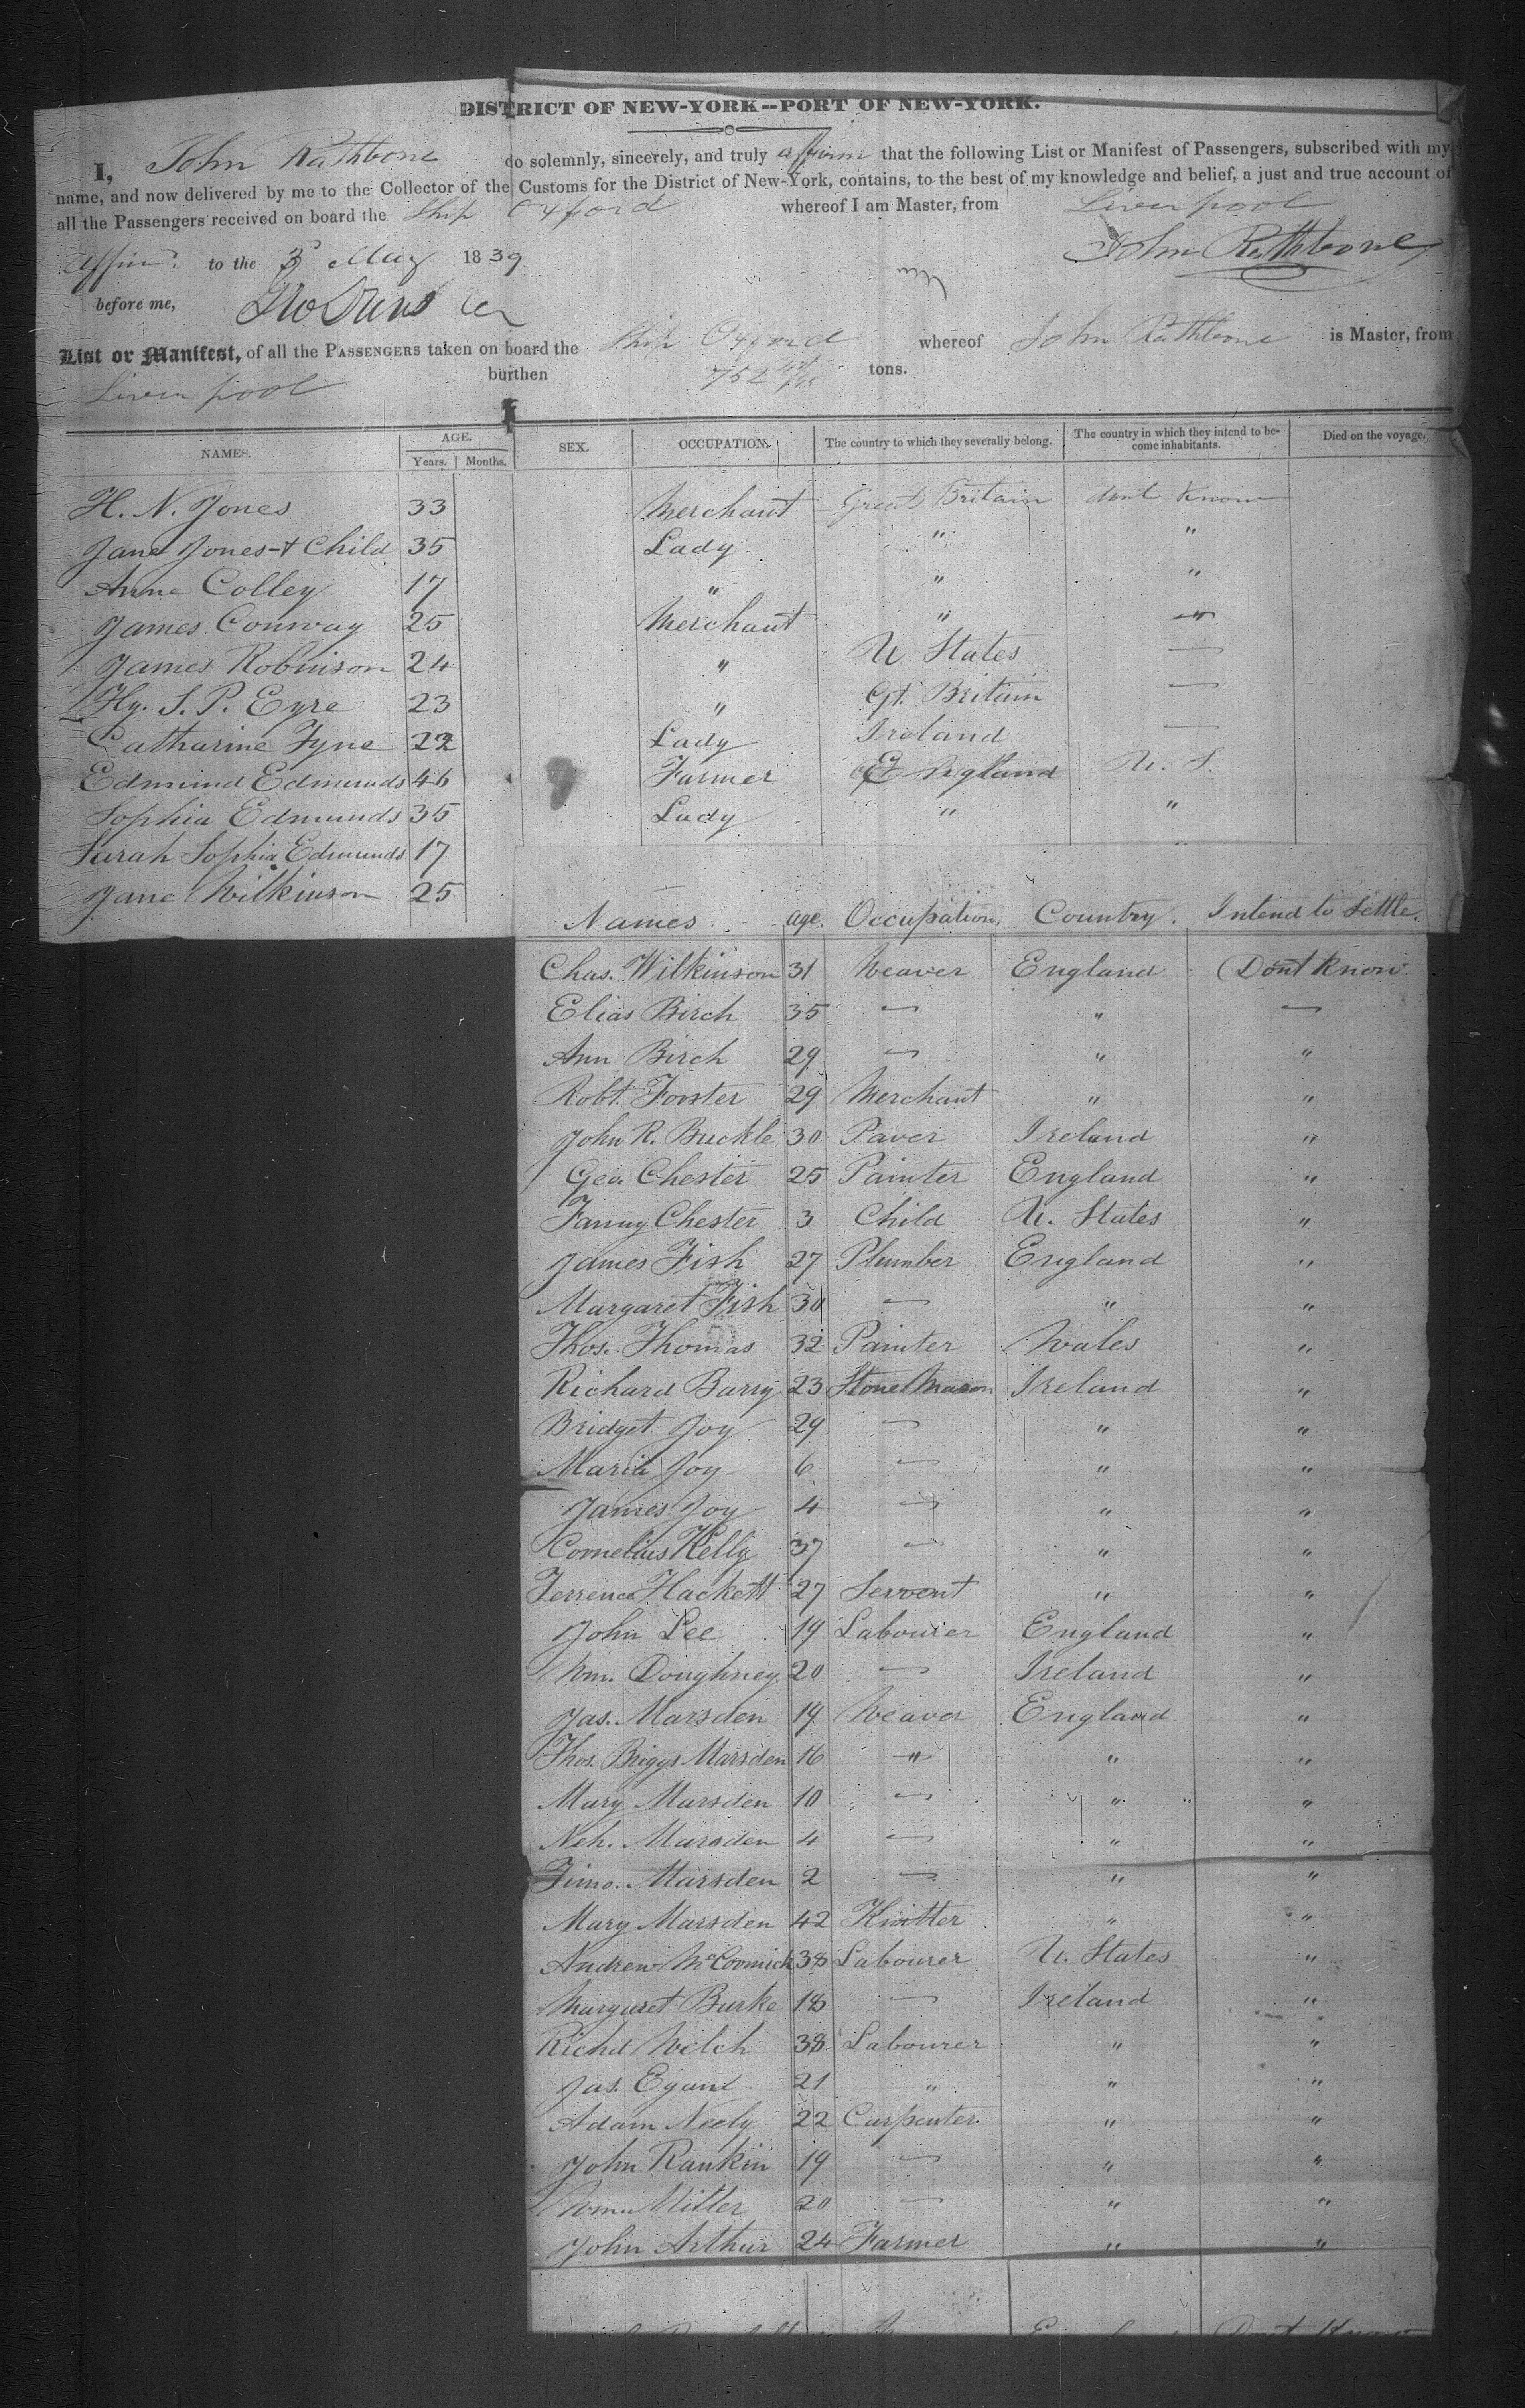 DISTRICT OF NEW-YORK--PORT OF NEW-YORK.
I, John Rathbone do solemnly, sincerely, and truly affirm that the following List or Manifest of Passengers, subscribed with my
name, and now delivered by me to the Collector of the Customs for the District of New-York, contains, to the best of my knowledge and belief, a just and true account of
all the Passengers received on board the Ship Oxford whereof I am Master, from Liverpool
John Rathbone
Affirm. to the 3 May 1839
before me,
List or Manifest, of all the PASSENGERS taken on board the Ship Oxford whereof John Rathbone is Master, from
Liverpool burthen 752 tons.
NAMES. AGE. Years. Months. SEX. OCCUPATION. The country to which they severally belong. The country in which they intend to become inhabitants. Died on the voyage.
H. N. Jones 33 Merchant Great Britain dont know
Jane Jones + Child 35 Lady " "
Anne Colley 17 " " "
James Conway 25 Merchant " "
James Robinson 24 " U States —
Hy. S. P. Eyre 23 " Gt. Britain —
Catharine Fyne 22 Lady Ireland —
Edmund Edmunds 46 Farmer England U. S.
Sophia Edmunds 35 Lady " "
Sarah Sophia Edmunds 17
Jane Wilkinson 25
Names age. Occupation. Country. Intend to Settle.
Chas. Wilkinson 31 Weaver England Dont Know
Elias Birch 35 — " —
Ann Birch 29 — " "
Robt. Forster 29 Merchant " "
John R. Buckle 30 Paver Ireland "
Geo. Chester 25 Painter England "
Fanny Chester 3 Child U. States "
James Fish 27 Plumber England "
Margaret Fish 30 — " "
Thos. Thomas 32 Painter Wales "
Richard Barry 23 Stone Mason Ireland "
Bridget Joy 29 — " "
Maria Joy 6 — " "
James Joy 4 — " "
Cornelius Kelly 37 — " "
Terrence Hackett 27 Servent " "
John Lee 19 Labourer England "
Wm. Doughney 20 — Ireland "
Jas. Marsden 19 Weaver England "
Thos. Briggs Marsden 16 " " "
Mary Marsden 10 — " "
Neh. Marsden 4 — " "
Timo. Marsden 2 — " "
Mary Marsden 42 Knitter " "
Andrew McCormick 38 Labourer U. States "
Margaret Burke 18 — Ireland "
Richd Welch 38 Labourer " "
Jas. Egant 21 " " "
Adam Neely 22 Carpenter " "
John Rankin 19 — " "
Wm. Miller 20 — " "
John Arthur 24 Farmer " "
Dont Know